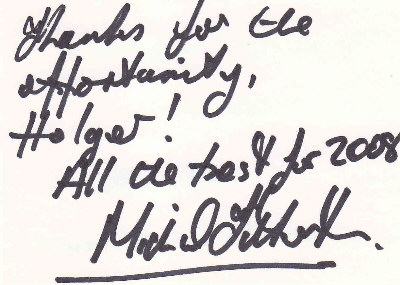 Thanks for the
opportunity,
Holger!
All the best for 2008
Michael